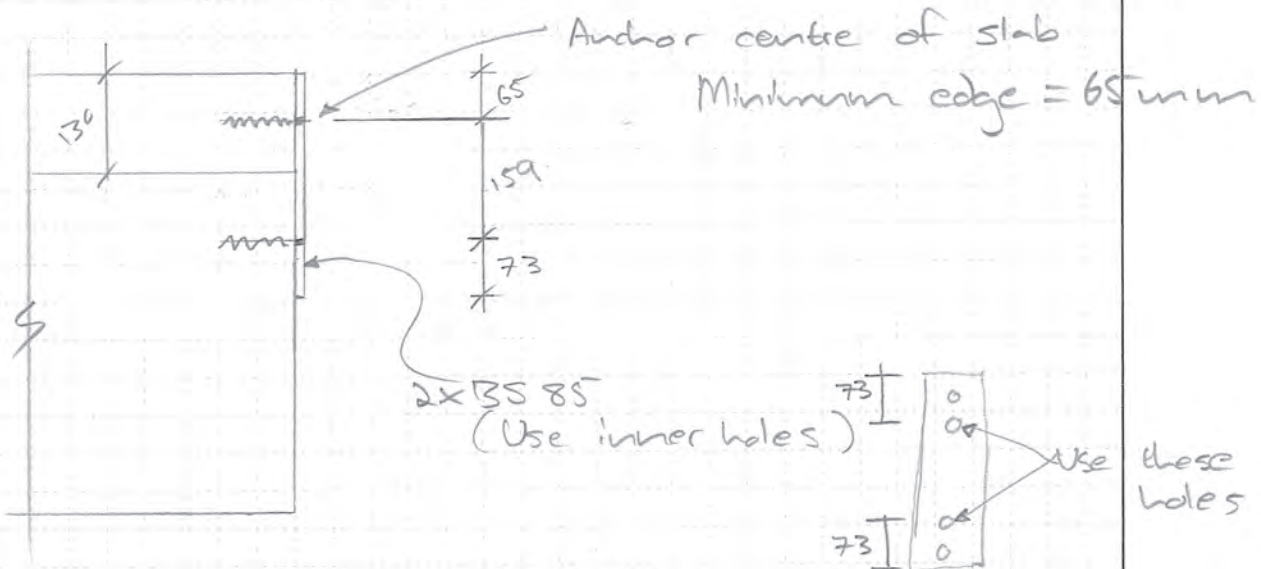 Anchor centre of slab
Minimum edge = 65mm
65
130
159
73
2x BS 85
(Use inner holes)
73
Use these
holes
73